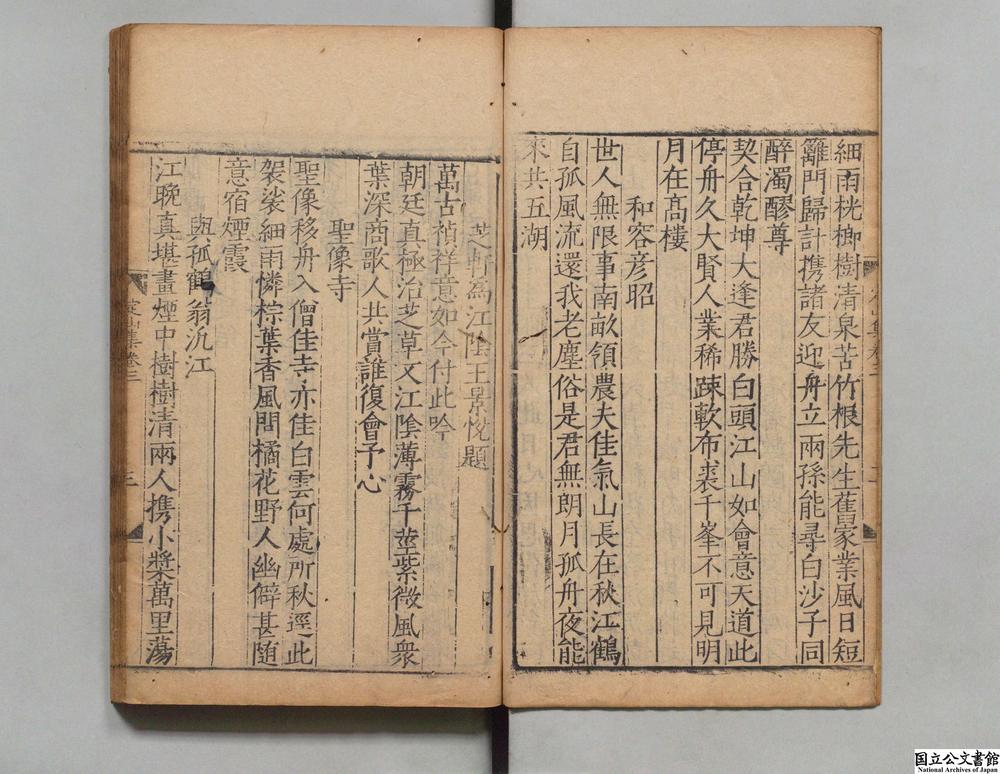 細雨桄榔樹清泉苦竹根先生舊家業風日短
籬門歸計携諸友迎舟立兩孫能尋白沙子同
醉濁醪尊
契合乾坤大逢君勝白頭江山如會意天道此
停舟久大賢人業稀踈軟布裘千峯不可見明
月在高樓
和容彥昭
世人無限事南畝領農夫佳氣山長在秋江鶴
自孤風流還我老塵俗是君無朗月孤舟夜能
來共五湖
芝軒爲江陰王景悅題
萬古禎祥意如今付此吟
朝廷真極治芝草又江陰薄霧千莖紫微風衆
葉深商歌人共賞誰復會予心
聖像寺
聖像移舟入僧佳寺亦佳白雲何處所秋逕此
袈裟細雨憐棕葉香風問橘花野人幽僻甚随
意宿煙霞
與孤鶴翁汎江
江晚真堪畫煙中樹樹清兩人携小槳萬里蕩
集卷三
三
国立公文書館
National Archives of Japan